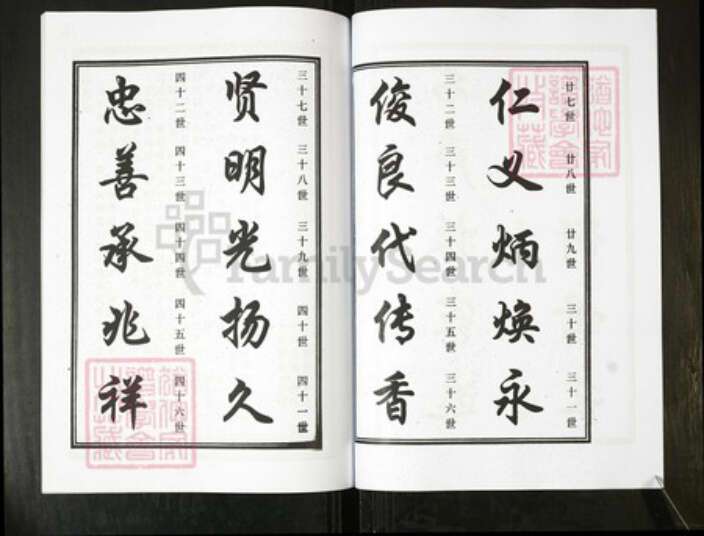 廿七世 廿八世 廿九世 三十世 三十一世
仁义炳焕永
三十二世 三十三世 三十四世 三十五世 三十六世
俊良代传香
三十七世 三十八世 三十九世 四十世 四十一世
贤明光扬久
四十二世 四十三世 四十四世 四十五世 四十六世
忠善承兆祥
FamilySearch